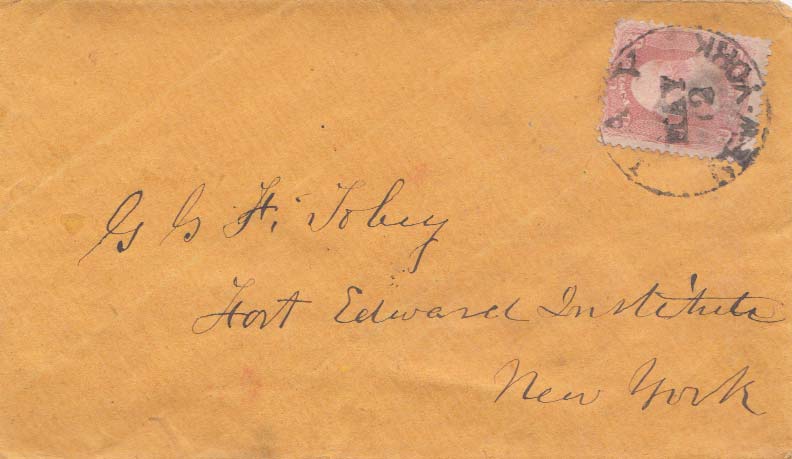 NEW-YORK
MAY
12
G G F. Tobey
Fort Edward Institute
New York